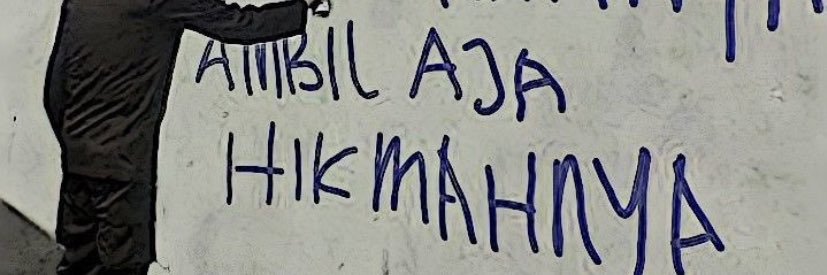 AMBIL AJA
HIKMAHNYA